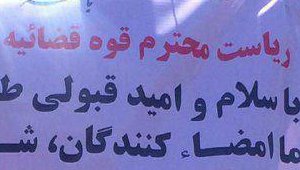 ریاست محترم قوه قضائیه
با سلام و امید قبولی ط
ما امضاء کنندگان، ش